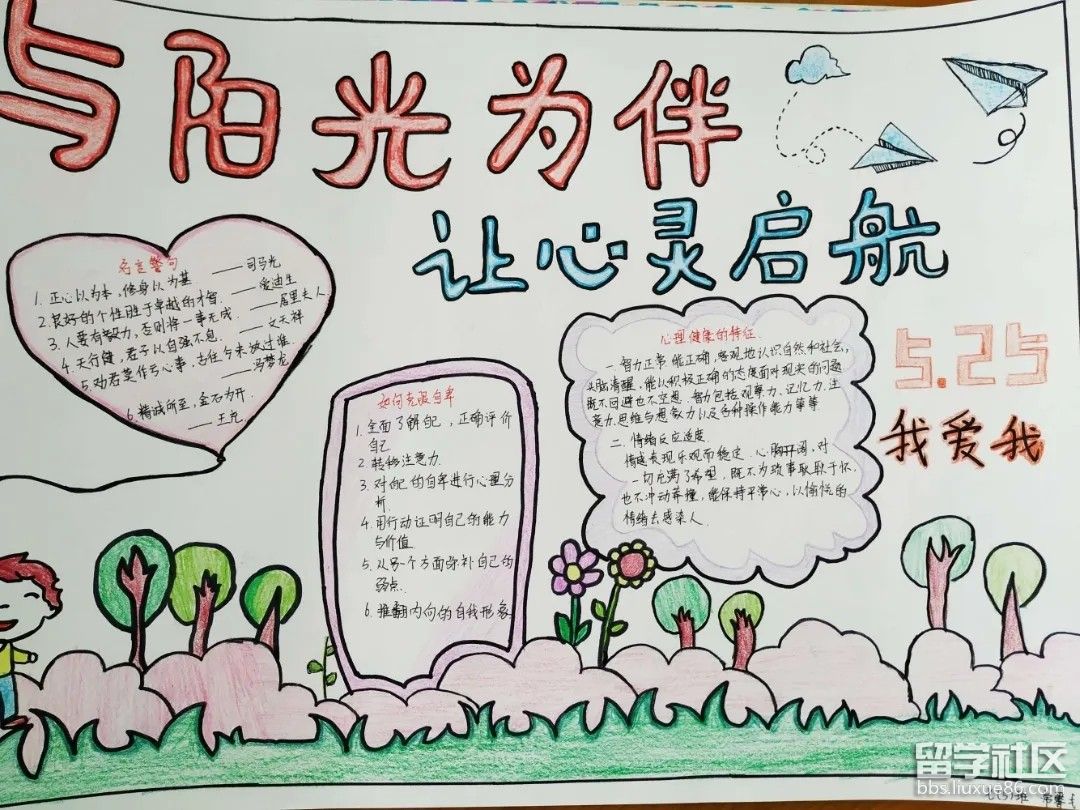 与阳光为伴
让心灵启航
名言警句
1. 正心以为本，修身以为基 ——司马光
2. 良好的个性胜于卓越的才智. ——爱迪生
3. 人要有毅力，否则将一事无成. ——居里夫人
4. 天行健，君子以自强不息. ——文天祥
5. 劝君莫作亏心事，古往今来放过谁. ——冯梦龙
6. 精诚所至，金石为开.
——王充
如何克服自卑
1. 全面了解自己，正确评价
自己
2. 转移注意力.
3. 对自己的自卑进行心理分
析.
4. 用行动证明自己的能力
与价值.
5. 从另一个方面弥补自己的
弱点.
6. 推翻内向的自我形象
心理健康的特征.
一 智力正常 能正确，客观地认识自然和社会，
头脑清醒，能以积极正确的态度面对现实的问题
既不回避也不空想. 智力包括观察力、记忆力、注
意力、思维与想象力以及各种操作能力等等
二 情绪反应适度
情感表现乐观而稳定. 心胸开阔，对
一切充满了希望，既不为琐事耿耿于怀，
也不冲动莽撞，能保持平常心，以愉悦的
情绪去感染人.
5.25
我爱我
留学社区
bbs.liuxue86.com